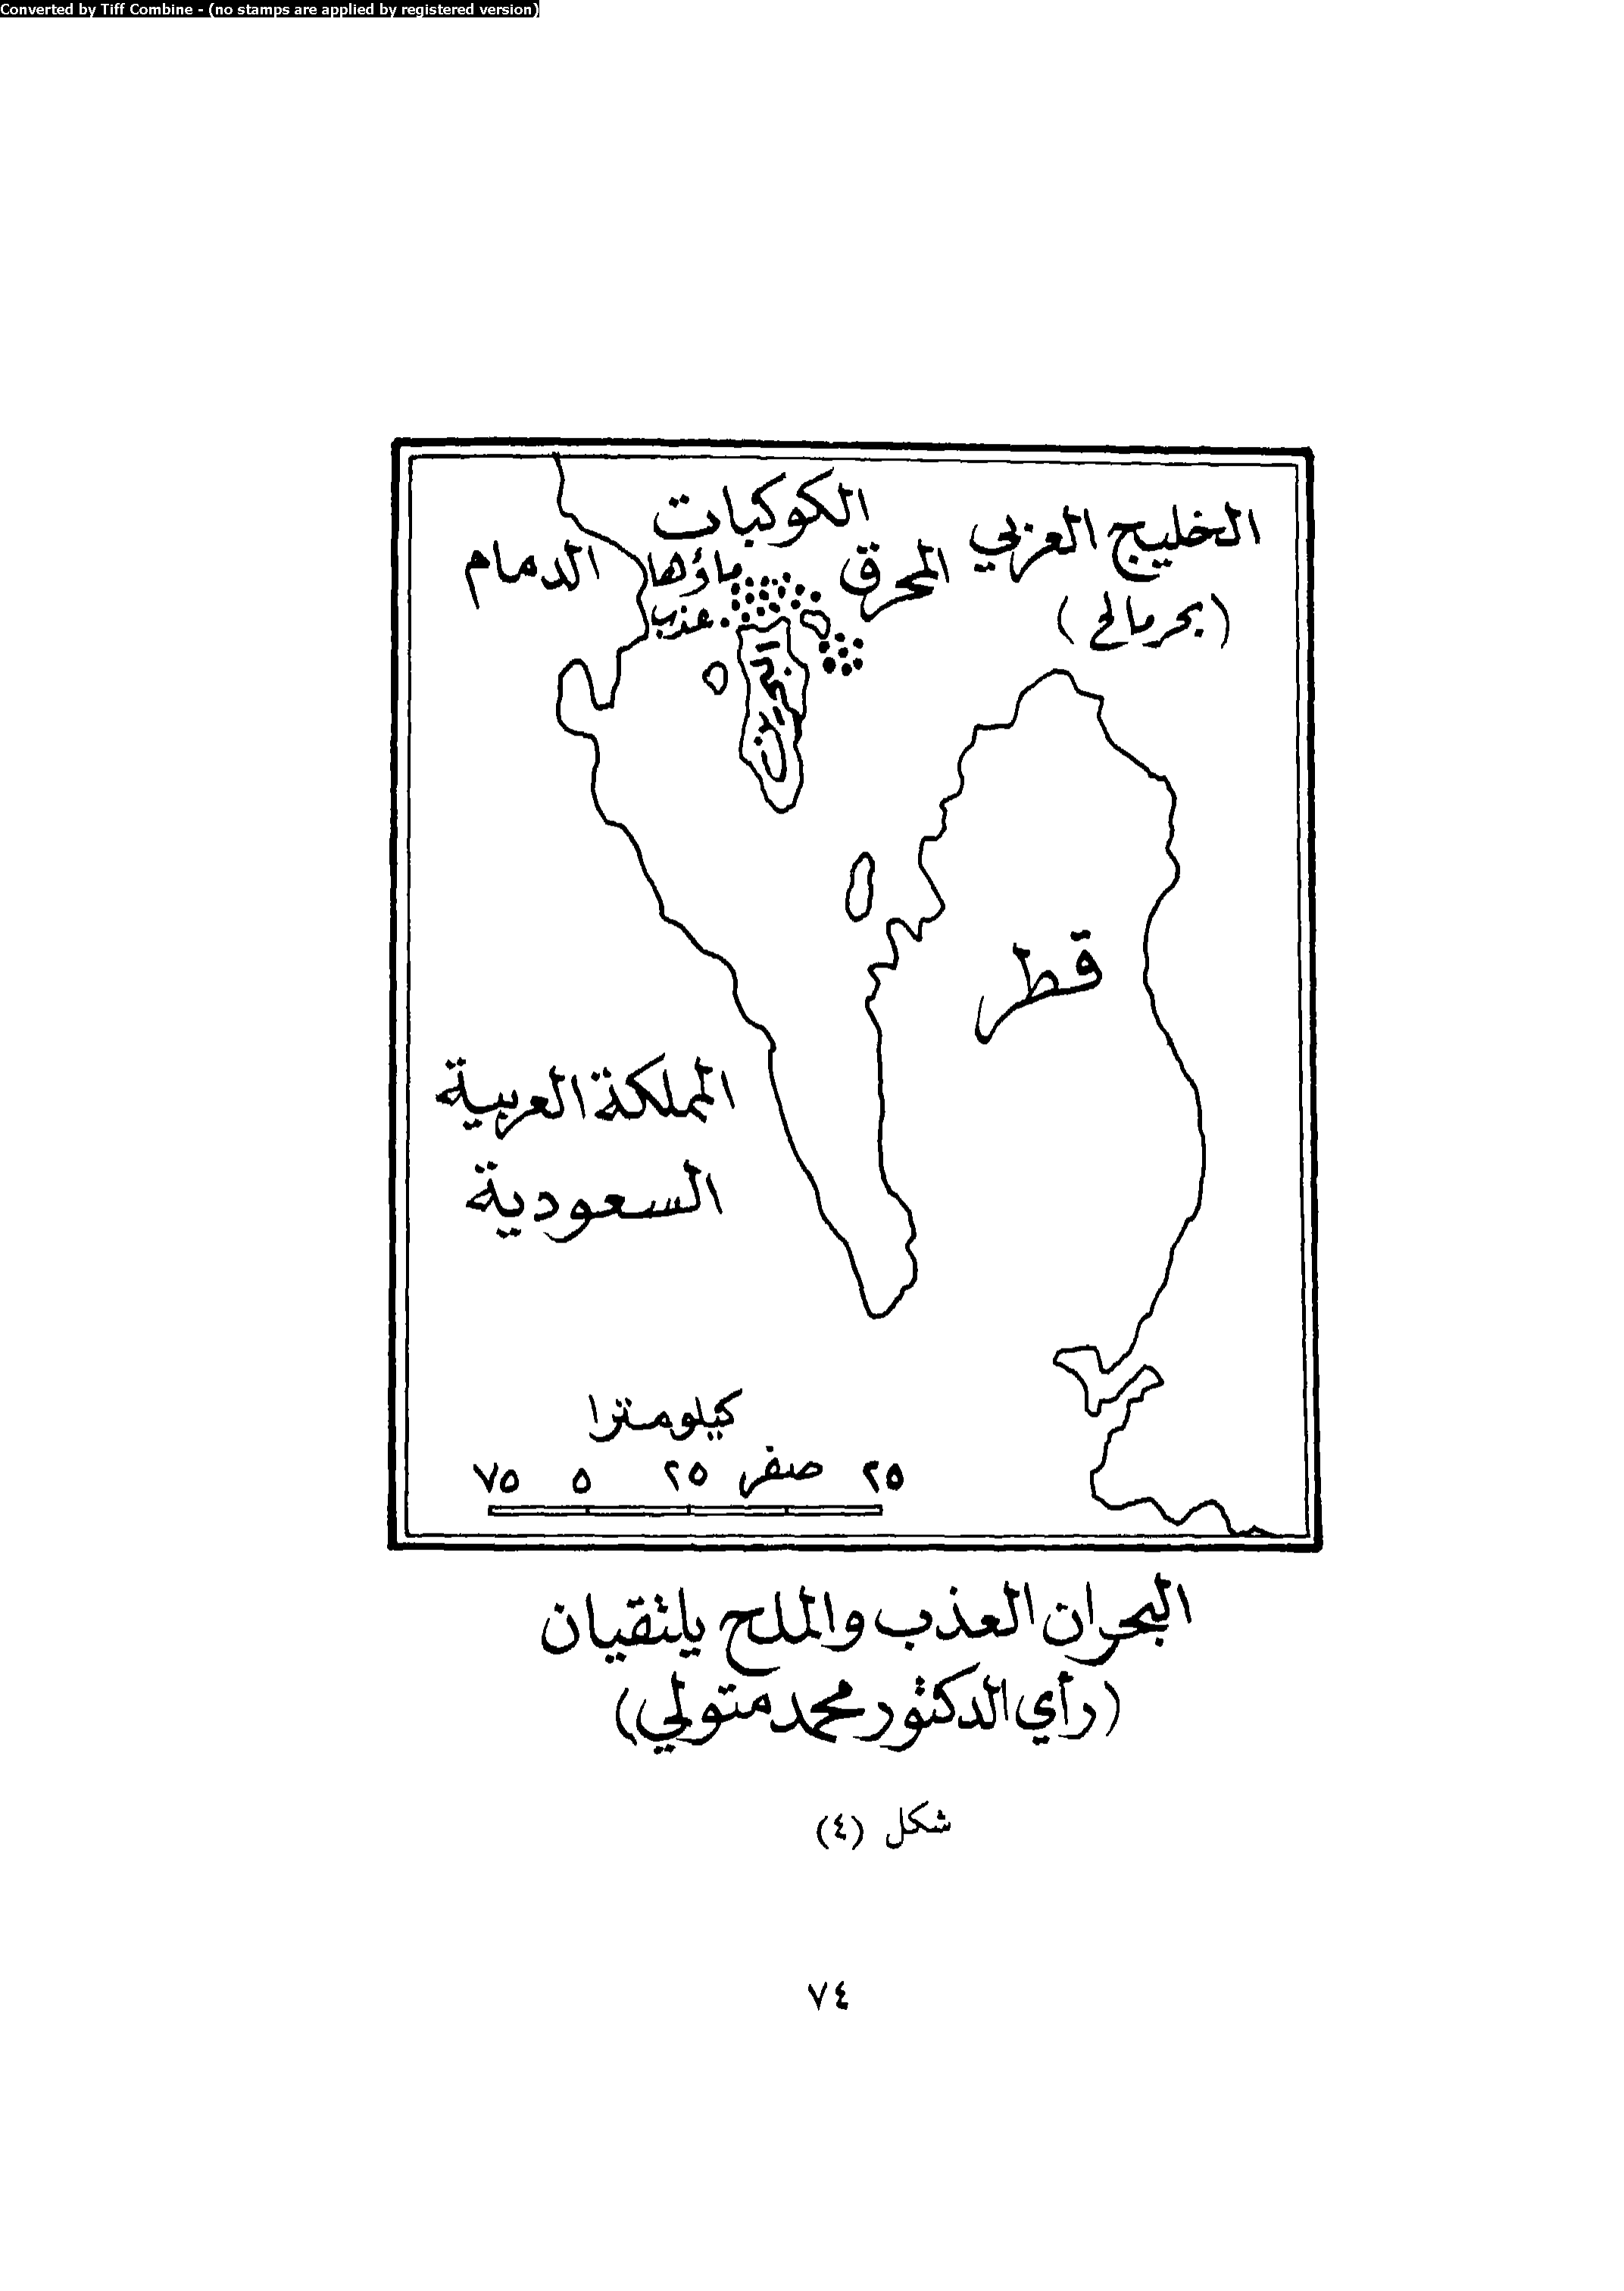 Converted by Tiff Combine - (no stamps are applied by registered version)
الكوكبات
الخليج العربي
المحرق
ماؤها
الدمام
(بحر مالح)
عذب
البحرين
قطر
المملكة العربية
السعودية
كيلومترا
٧٥ ٥ ٢٥ صفر ٢٥
البحران العذب والملح يلتقيان
(رأي الدكتور محمد متولي)
شكل (٤)
٧٤